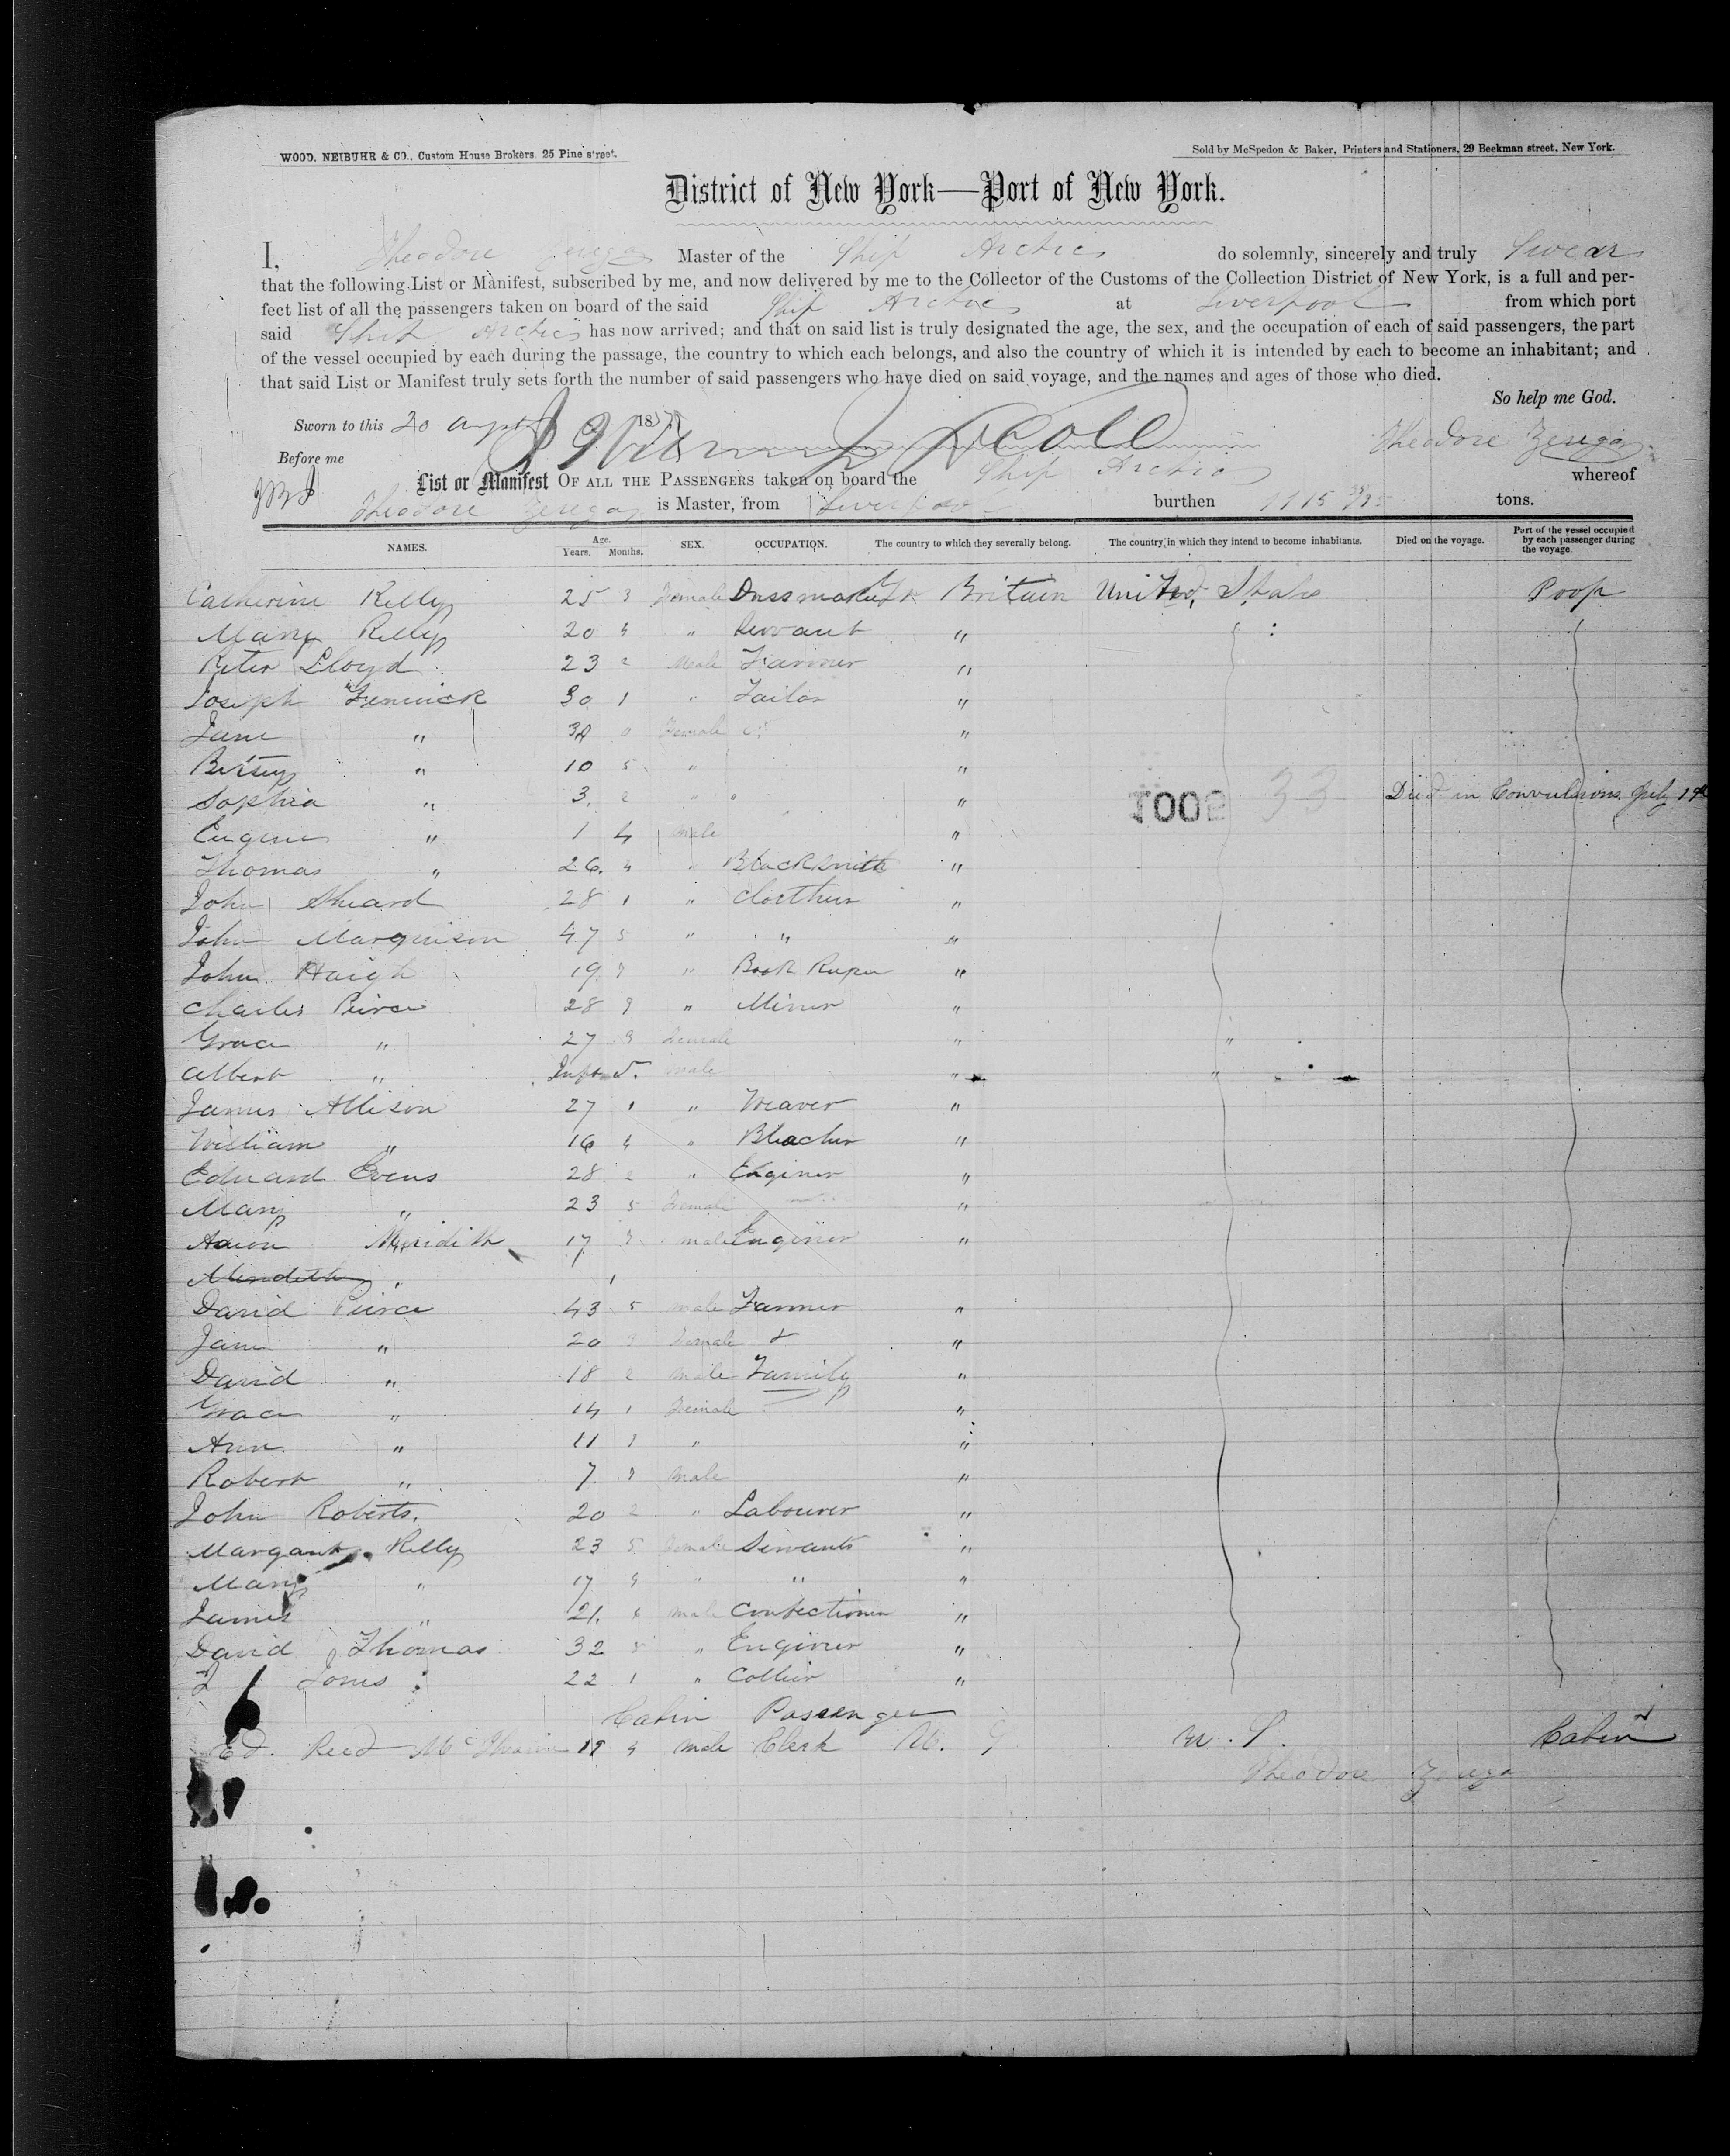 WOOD, NEIBUHR & CO., Custom House Brokers, 25 Pine street.
Sold by McSpedon & Baker, Printers and Stationers, 29 Beekman street, New York.
District of New York—Port of New York.
I, Theodore Zerega Master of the Ship Arctic do solemnly, sincerely and truly Swear
that the following List or Manifest, subscribed by me, and now delivered by me to the Collector of the Customs of the Collection District of New York, is a full and per-
fect list of all the passengers taken on board of the said Ship Arctic at Liverpool from which port
said Ship Arctic has now arrived; and that on said list is truly designated the age, the sex, and the occupation of each of said passengers, the part
of the vessel occupied by each during the passage, the country to which each belongs, and also the country of which it is intended by each to become an inhabitant; and
that said List or Manifest truly sets forth the number of said passengers who have died on said voyage, and the names and ages of those who died.
So help me God.
Sworn to this 20 1857 Theodore Zerega
Before me
List or Manifest OF ALL THE PASSENGERS taken on board the Ship Arctic whereof
Theodore Zerega is Master, from Liverpool burthen 1115 tons.
NAMES. Age. Years. Months. SEX. OCCUPATION. The country to which they severally belong. The country in which they intend to become inhabitants. Died on the voyage. Part of the vessel occupied by each passenger during the voyage.
Catherine Kelly 25 3 Female Dressmaker Gt Britain United States Poop
Mary Kelly 20 4 " Servant "
Peter Lloyd 23 2 Male Farmer "
Joseph Fenwick 30 1 " Tailor "
Jane " 30 0 Female "
Betsey " 10 5 " "
Sophia " 3 2 " " " 1002 33 Died in Convulsions July 19
Eugene " 1 4 male "
Thomas " 26 4 " Blacksmith "
John Sheard 28 1 " Clothier "
John Margerison 47 5 " " "
John Haigh 19 7 " Book Keeper "
Charles Peirce 28 9 " Miner "
Grace " 27 3 Female " "
Albert " Inft 5 male " "
James Allison 27 1 " Weaver "
William " 16 4 " Bleacher "
Edward Evens 28 2 " Enginer "
Mary " 23 5 Female "
Aaron Meridith 17 7 male Enginer "
Meridith
David Peirce 43 5 male Farmer "
Jane " 20 9 Female & "
David " 18 2 male Family "
Grace " 14 1 Female "
Ann " 11 9 " "
Robert " 7 9 male "
John Roberts. 20 2 " Labourer "
Margaret Kelly 23 5 Female Servants "
Mary " 17 9 " " "
James " 21 6 male Confectioner "
David Thomas 32 5 " Enginer "
Jones 22 1 " Collier "
Cabin Passenger
Ed. Reed 19 4 male Clerk U. S. Cabin
Theodore Zerega